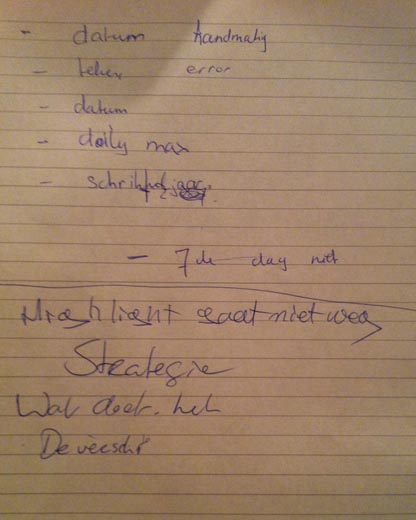 - datum handmatig
- error
- datum
- daily max
- schrikkeljaar.
- 7de dag niet
Highlight gaat niet weg
Strategie
Wat doet het
De